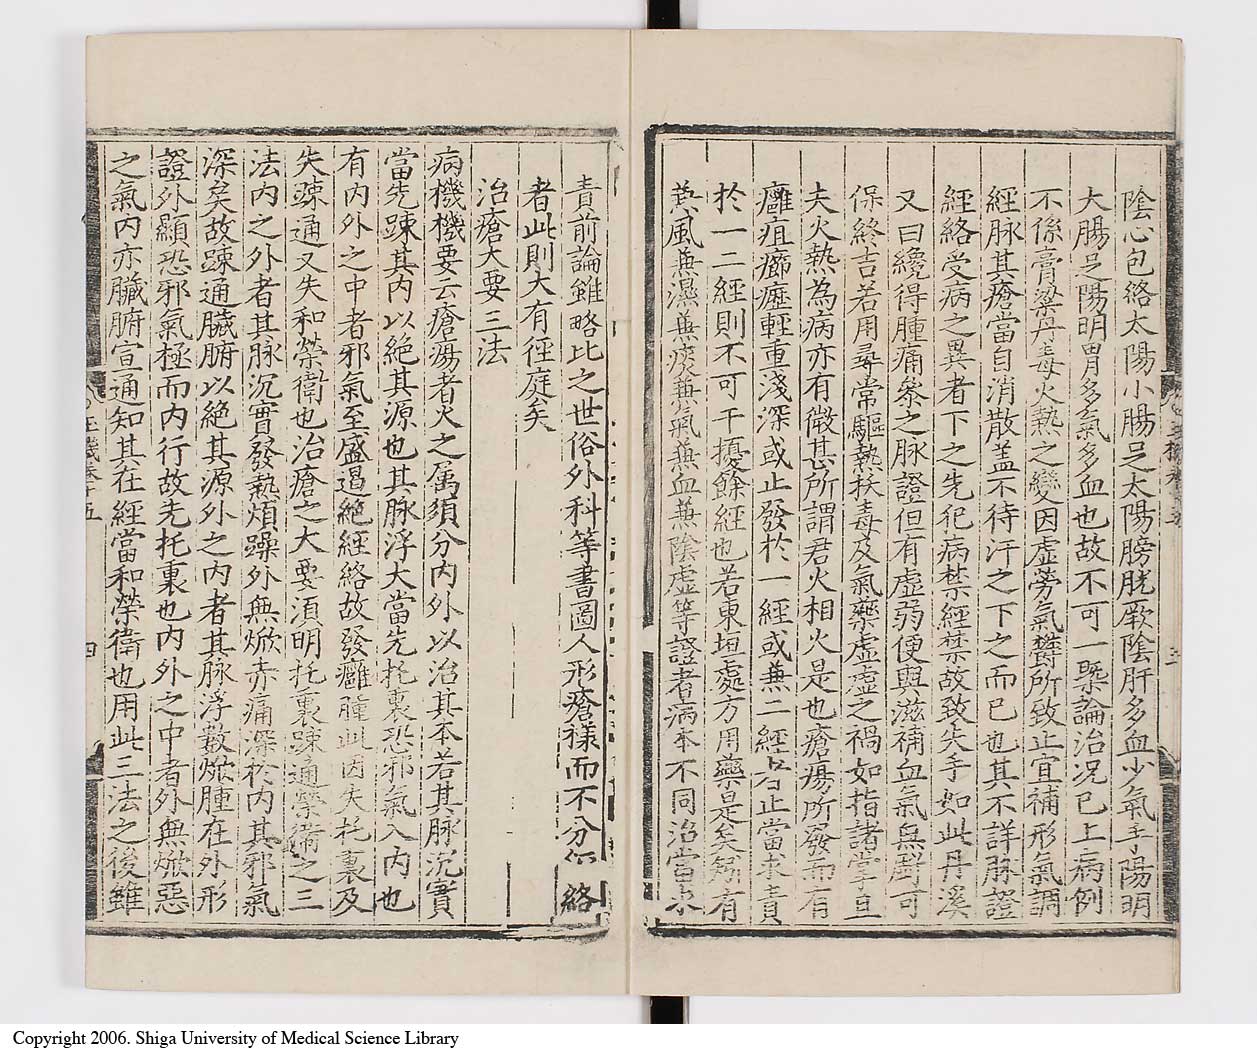 陰心包絡太陽小腸足太陽膀胱厥陰肝多血少氣手陽明
大腸足陽明胃多氣多血也故不可一槩論治况已上病例
不係膏粱丹毒火熱之變因虚勞氣欝所致止宜補形氣調
經脉其瘡當自消散盖不待汗之下之而已也其不詳脉證
經絡受病之異者下之先犯病禁經禁故致失手如此丹溪
又曰纔得腫痛叅之脉證但有虚弱便與滋補血氣無虧可
保終吉若用尋常驅熱拔毒及氣藥虚虚之禍如指諸掌且
夫火熱為病亦有微甚所謂君火相火是也瘡瘍所發而有
癰疽癤癧輕重淺深或止發於一經或兼二經者止當求責
於一二經則不可干擾餘經也若東垣處方用藥是矣矧有
兼風兼濕兼痰兼氣兼血兼陰虚等證者病本不同治當求
責前論雖略比之世俗外科等書圖人形瘡樣而不分經絡
者此則大有徑庭矣
治瘡大要三法
病機機要云瘡瘍者火之属須分内外以治其本若其脉沉實
當先踈其内以絶其源也其脉浮大當先托裏恐邪氣入内也
有内外之中者邪氣至盛遏絶經絡故發癰腫此因失托裏及
失踈通又失和榮衛也治瘡之大要須明托裏踈通榮衛之三
法内之外者其脉沉實發熱煩躁外無焮赤痛深於内其邪氣
深矣故踈通臓腑以絶其源外之内者其脉浮數焮腫在外形
證外顯恐邪氣極而内行故先托裏也内外之中者外無焮惡
之氣内亦臓腑宣通知其在經當和榮衛也用此三法之後雖
四
Copyright 2006. Shiga University of Medical Science Library